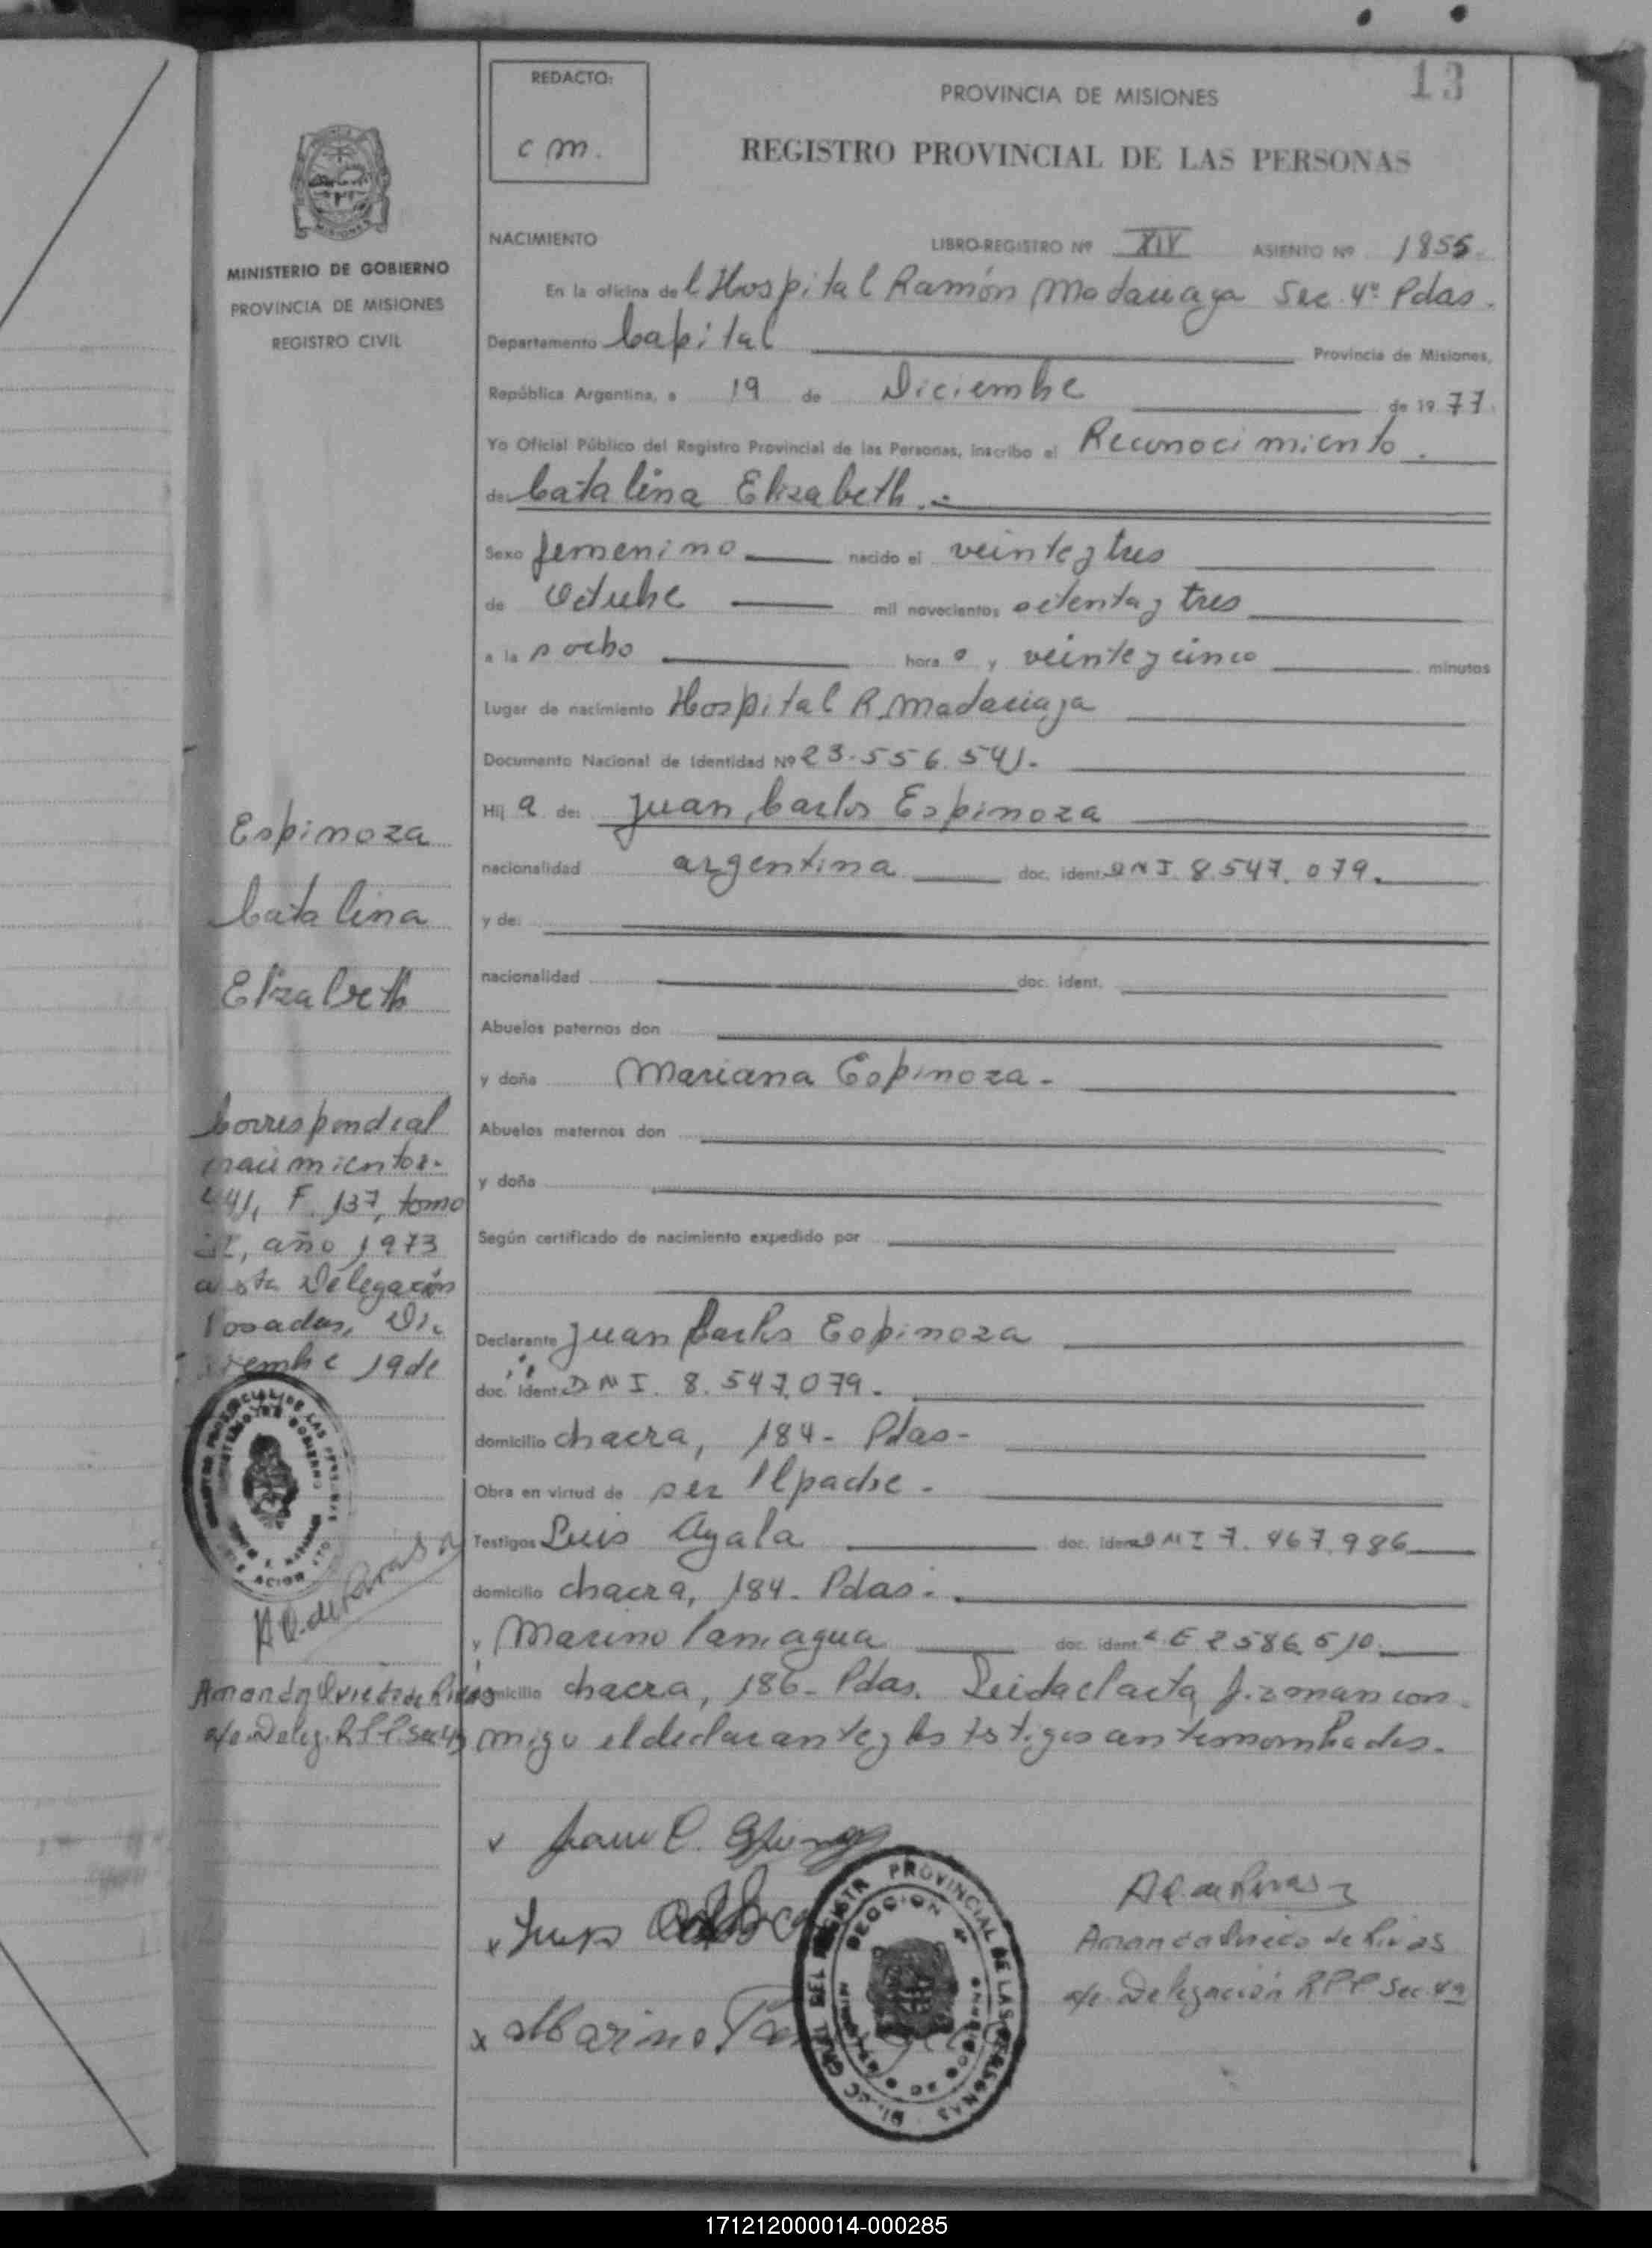 13
REDACTO:
c m.
PROVINCIA DE MISIONES
REGISTRO PROVINCIAL DE LAS PERSONAS
MINISTERIO DE GOBIERNO
PROVINCIA DE MISIONES
REGISTRO CIVIL
NACIMIENTO LIBRO-REGISTRO Nº XIV ASIENTO Nº 1855.
En la oficina del Hospital Ramón Madariaga Sec. 4ª Pdas.
Departamento Capital Provincia de Misiones,
República Argentina, a 19 de Diciembre de 1977.
Yo Oficial Público del Registro Provincial de las Personas, inscribo el Reconocimiento.
de: Catalina Elizabeth.-
Sexo femenino nacido el veinte y tres
de Octubre mil novecientos setenta y tres
a la s ocho hora s y veinte y cinco minutos
Lugar de nacimiento Hospital R. Madariaga
Documento Nacional de Identidad Nº 23.556.541.
Hij a de: Juan Carlos Espinoza
nacionalidad argentina doc. ident. DNI. 8.547.079.
y de:
nacionalidad doc. ident.
Abuelos paternos don
y doña Mariana Espinoza-
Abuelos maternos don
y doña
Según certificado de nacimiento expedido por
Declarante Juan Carlos Espinoza
doc. ident. DNI. 8.547.079.
domicilio chacra, 184- Pdas-
Obra en virtud de ser el padre-
Testigos Luis Ayala doc. ident. DNI 7.467.986
domicilio chacra, 184- Pdas.-
y Marino Paniagua doc. ident. C.E 2586510.
domicilio chacra, 186- Pdas. Leida el acta firman con-
migo el declarante y los testigos antenombrados.
Espinoza
Catalina
Elizabeth
Corresponde al
nacimiento
441, F. 137, tomo
año 1973
Delegación
Posadas, Di
ciembre 19 de
A O. de Rivas
Amanda Oviedo de Rivas
a/c. Deleg. R.P.P. Sec 4ª
Juan C. Espinoza
Luis
Marino
DIRECC GRAL DEL REGISTR PROVINCIAL DE LAS PERSONAS
SECCION 4ª
A O. de Rivas
Amanda Oviedo de Rivas
a/c. Delegación RPP Sec. 4ª
171212000014-000285